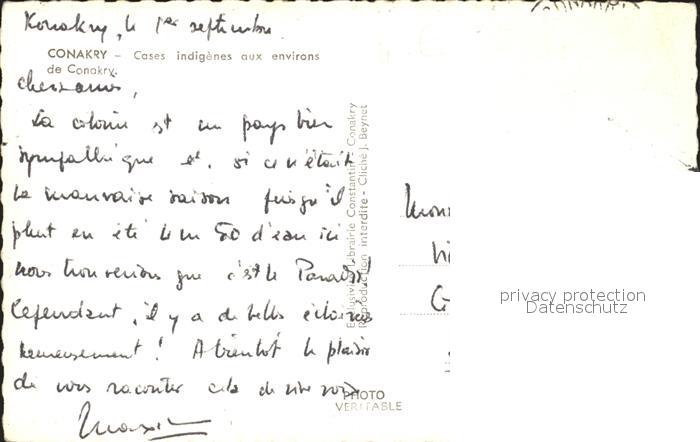 Konakry, le 1er septembre
CONAKRY – Cases indigènes aux environs
de Conakry.
Chers amis,
La colonie est un pays bien
sympathique et, si ce n'était
la mauvaise saison puisqu'il
pleut en été 4m50 d'eau ici
nous trouverions que c'est le Paradis
Cependant, il y a de belles éclaircies
heureusement! A bientôt le plaisir
de vous raconter cela de vive voix
Exclusivité Librairie Constantin - Conakry
Reproduction interdite - Cliché J. Beynet
PHOTO
VERITABLE
privacy protection
Datenschutz